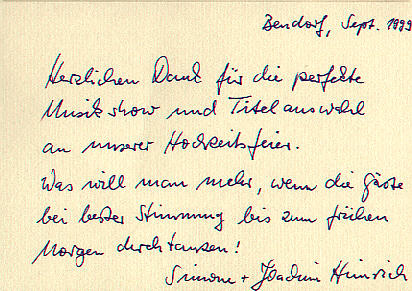 Bendorf, Sept. 1999
Herzlichen Dank für die perfekte
Musikshow und Titelauswahl
an unserer Hochzeitsfeier.
Was will man mehr, wenn die Gäste
bei bester Stimmung bis zum frühen
Morgen durchtanzen!
Simone + Joachim Heinrich